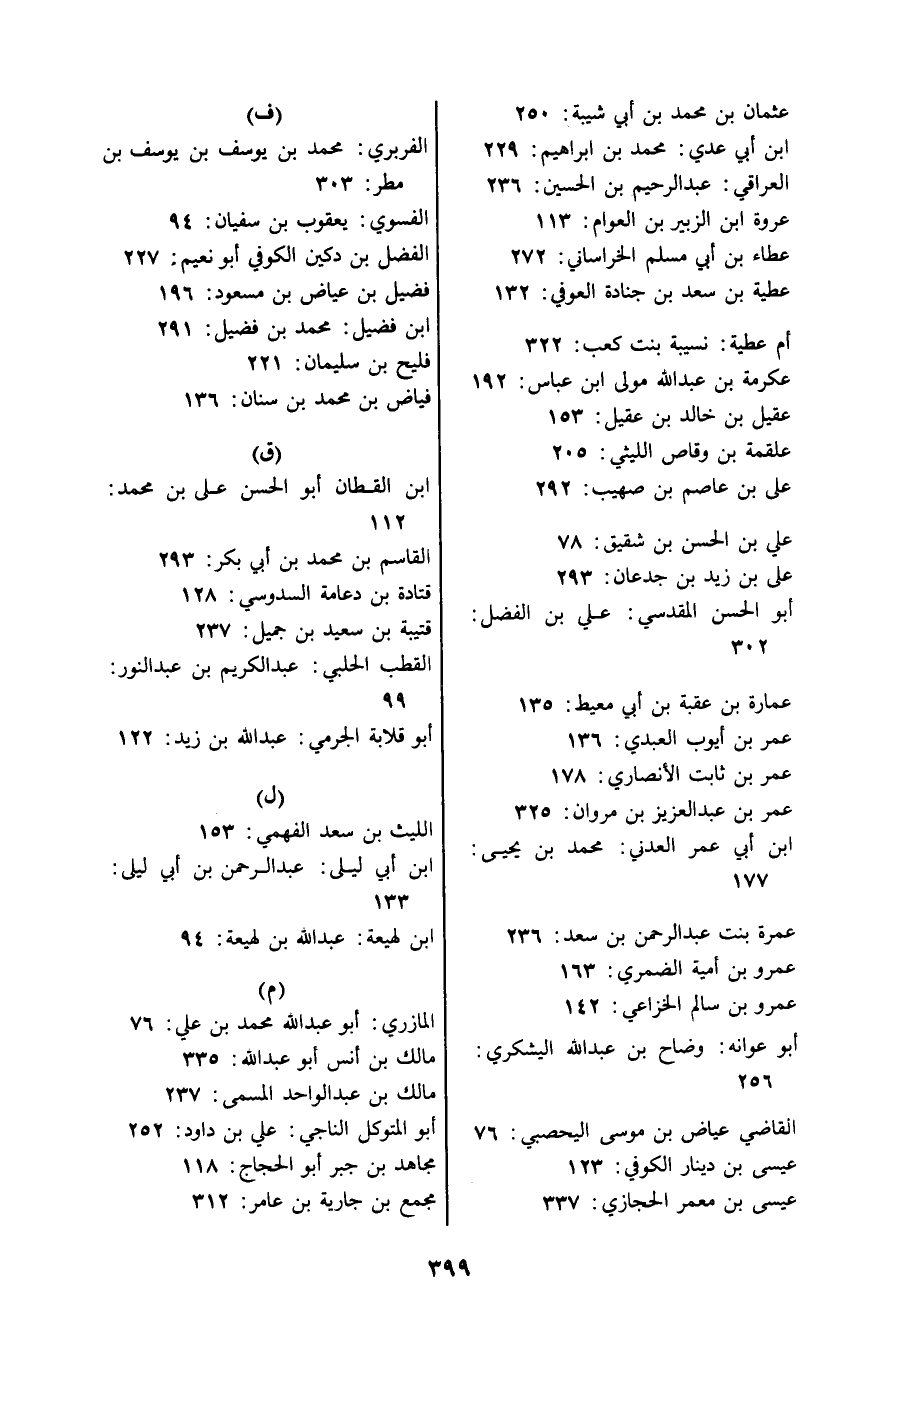 عثمان بن محمد بن أبي شيبة: ٢٥٠
ابن أبي عدي: محمد بن ابراهيم: ٢٢٩
العراقي: عبدالرحيم بن الحسين: ٢٣٦
عروة ابن الزبير بن العوام: ١١٣
عطاء بن أبي مسلم الخراساني: ٢٧٢
عطية بن سعد بن جنادة العوفي: ١٣٢
أم عطية: نسيبة بنت كعب: ٣٢٢
عكرمة بن عبدالله مولى ابن عباس: ١٩٢
عقيل بن خالد بن عقيل: ١٥٣
علقمة بن وقاص الليثي: ٢٠٥
على بن عاصم بن صهيب: ٢٩٢
علي بن الحسن بن شقيق: ٧٨
على بن زيد بن جدعان: ٢٩٣
أبو الحسن المقدسي: علي بن الفضل:
٣٠٢
عمارة بن عقبة بن أبي معيط: ١٣٥
عمر بن أيوب العبدي: ١٣٦
عمر بن ثابت الأنصاري: ١٧٨
عمر بن عبدالعزيز بن مروان: ٣٢٥
ابن أبي عمر العدني: محمد بن يحيى:
١٧٧
عمرة بنت عبدالرحمن بن سعد: ٢٣٦
عمرو بن أمية الضمري: ١٦٣
عمرو بن سالم الخزاعي: ١٤٢
أبو عوانه: وضاح بن عبدالله اليشكري:
٢٥٦
القاضي عياض بن موسى اليحصبي: ٧٦
عيسى بن دينار الكوفي: ١٢٣
عيسى بن معمر الحجازي: ٣٣٧
(ف)
الفربري: محمد بن يوسف بن يوسف بن
مطر: ٣٠٣
الفسوي: يعقوب بن سفيان: ٩٤
الفضل بن دكين الكوفي أبو نعيم: ٢٢٧
فضيل بن عياض بن مسعود: ١٩٦
ابن فضيل: محمد بن فضيل: ٢٩١
فليح بن سليمان: ٢٢١
فياض بن محمد بن سنان: ١٣٦
(ق)
ابن القطان أبو الحسن على بن محمد:
١١٢
القاسم بن محمد بن أبي بكر: ٢٩٣
قتادة بن دعامة السدوسي: ١٢٨
قتيبة بن سعيد بن جميل: ٢٣٧
القطب الحلبي: عبدالكريم بن عبدالنور:
٩٩
أبو قلابة الجرمي: عبدالله بن زيد: ١٢٢
(ل)
الليث بن سعد الفهمي: ١٥٣
ابن أبي ليلى: عبدالرحمن بن أبي ليلى:
١٣٣
ابن لهيعة: عبدالله بن لهيعة: ٩٤
(م)
المازري: أبو عبدالله محمد بن علي: ٧٦
مالك بن أنس أبو عبدالله: ٣٣٥
مالك بن عبدالواحد المسمى: ٢٣٧
أبو المتوكل الناجي: علي بن داود: ٢٥٢
مجاهد بن جبر أبو الحجاج: ١١٨
مجمع بن جارية بن عامر: ٣١٢
٣٩٩